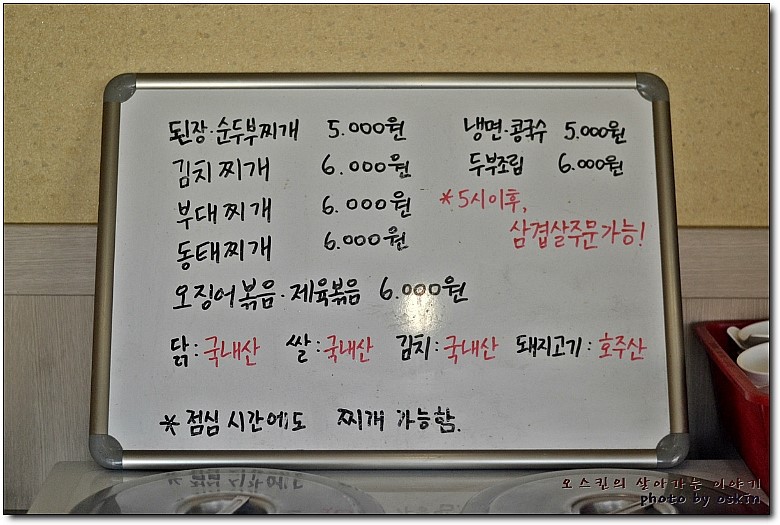 된장·순두부찌개 5.000원
김치찌개 6.000원
부대찌개 6.000원
동태찌개 6.000원
오징어볶음·제육볶음 6.000원
냉면·콩국수 5.000원
두부조림 6.000원
*5시이후,
삼겹살주문가능!
닭:국내산 쌀:국내산 김치:국내산 돼지고기:호주산
*점심시간에도 찌개 가능함.
오스킨의 살아가는 이야기
photo by oskin